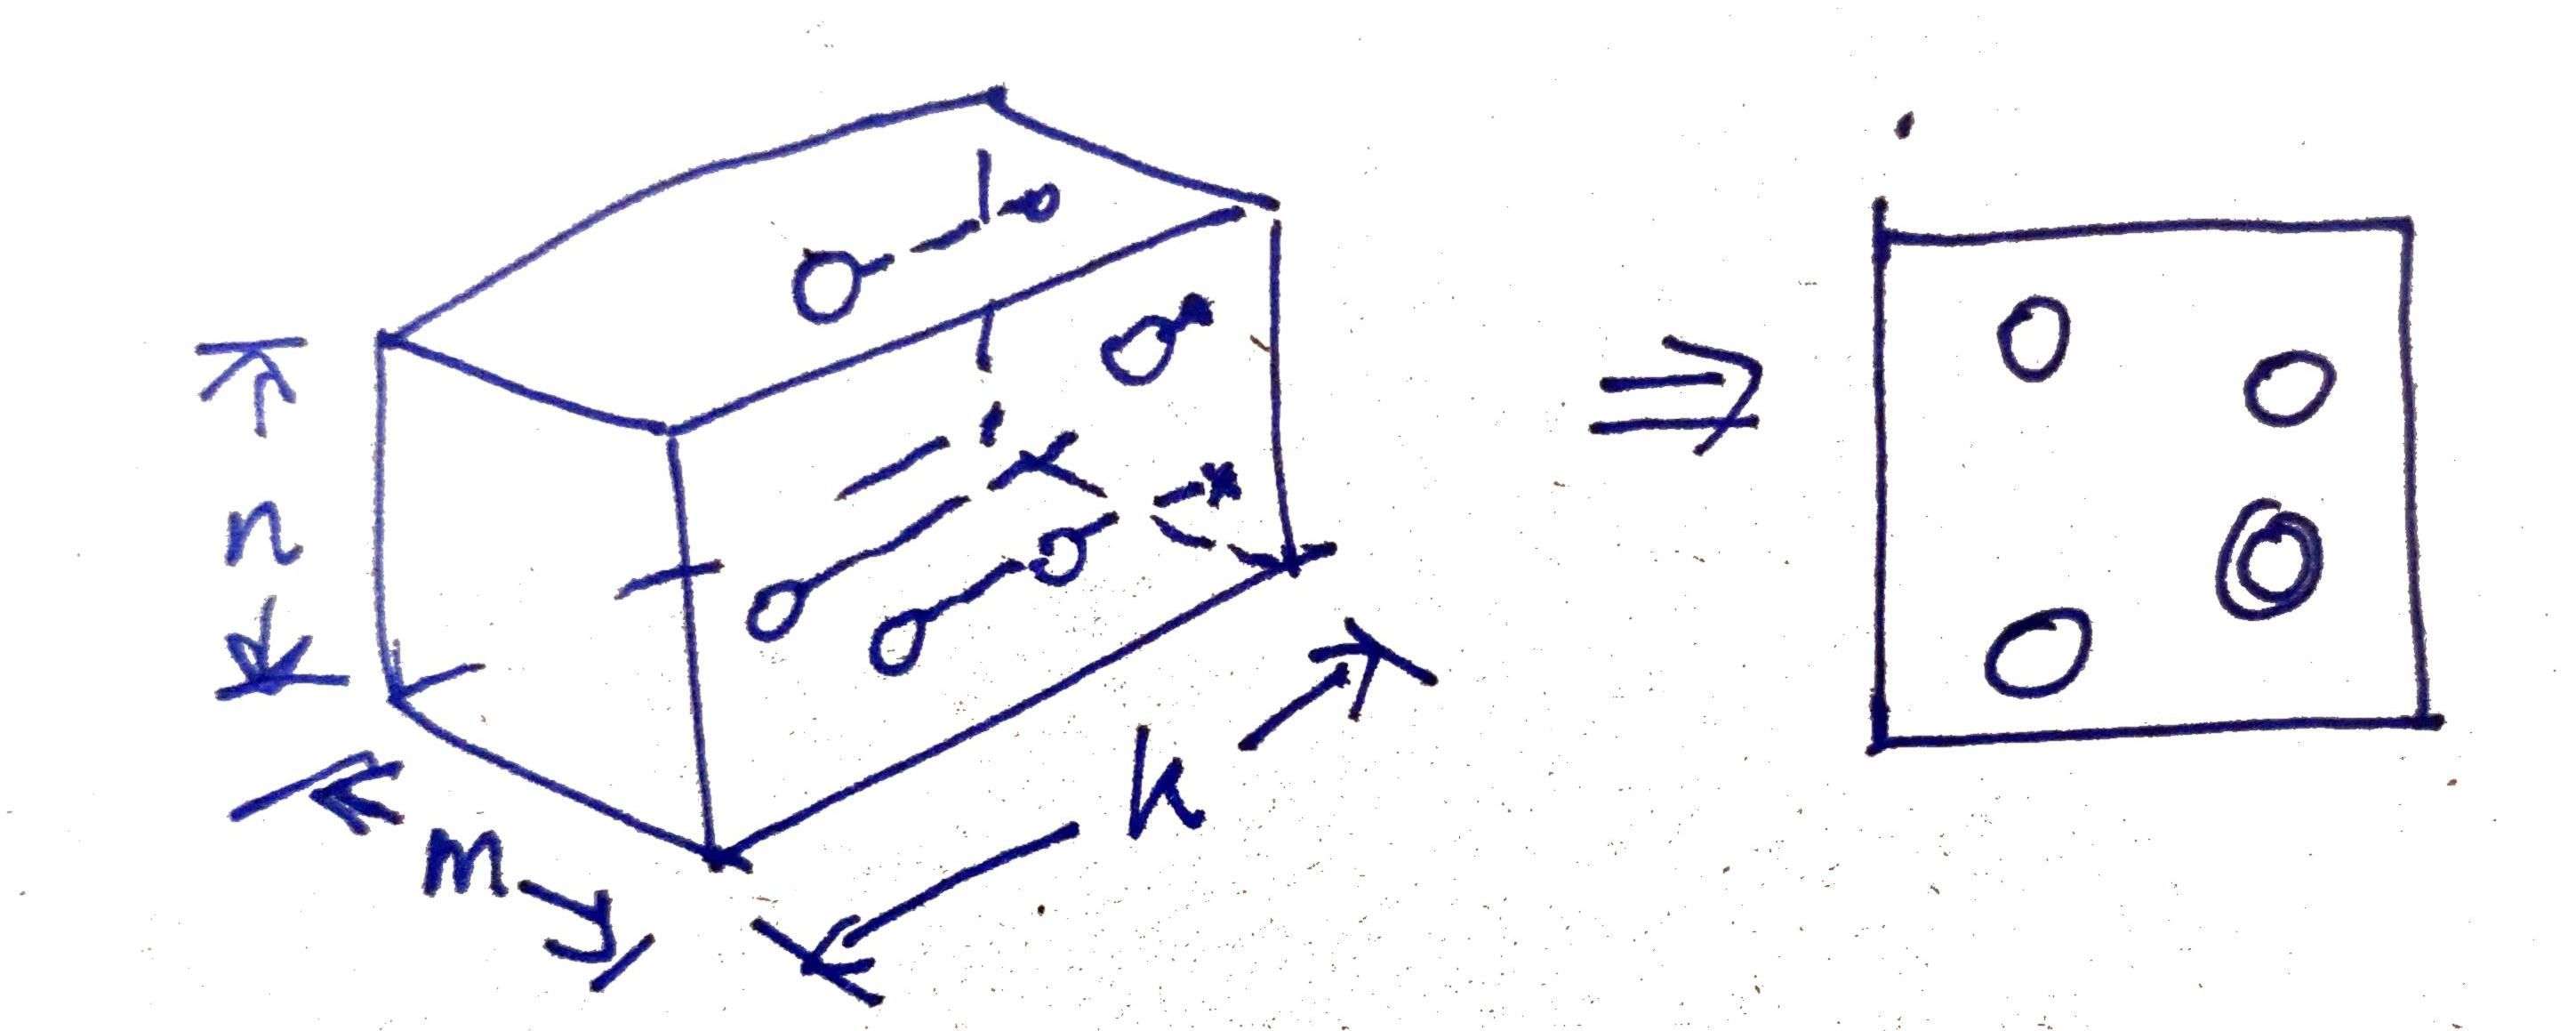 n
m
k